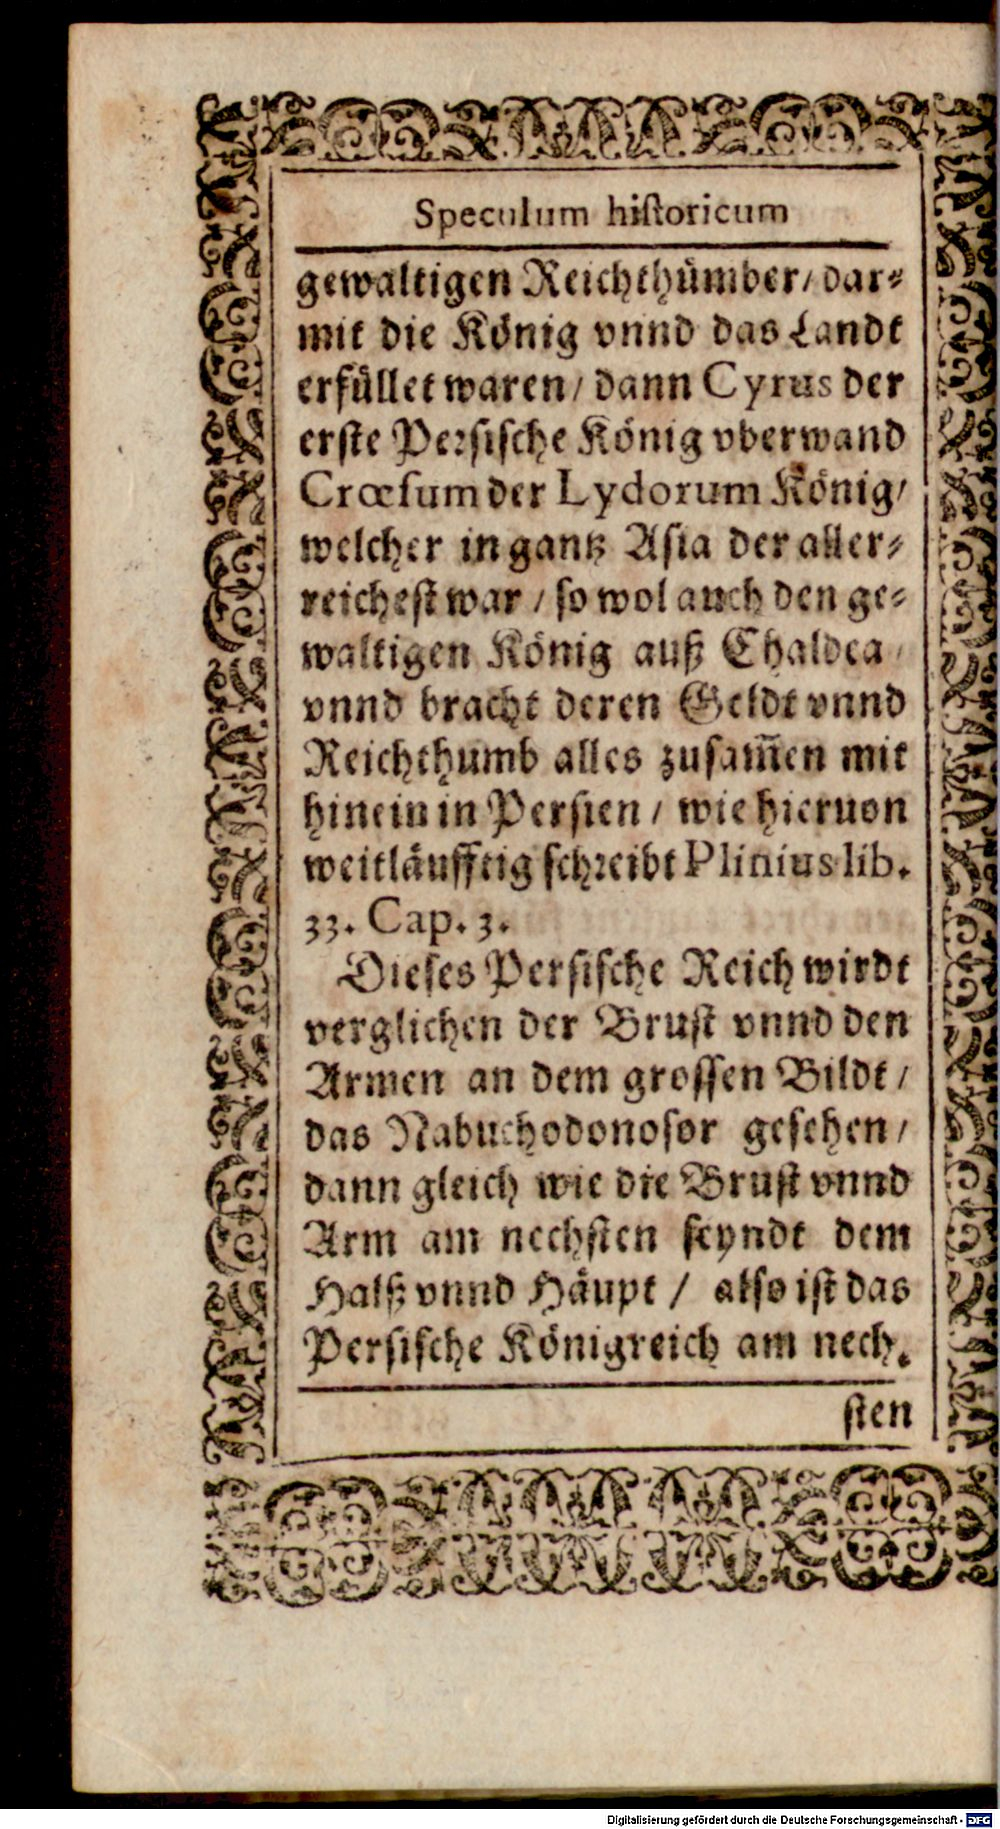 Speculum historicum
gewaltigen Reichthümber/ dar-
mit die König vnnd das Landt
erfüllet waren/ dann Cyrus der
erste Persische König vberwand
Crœsum der Lydorum König/
welcher in gantz Asia der aller-
reichest war / so wol auch den ge-
waltigen König auß Chaldea /
vnnd bracht deren Geldt vnnd
Reichthumb alles zusam̃en mit
hinein in Persien / wie hieruon
weitläufftig schreibt Plinius lib.
33. Cap. 3.
Dieses Persische Reich wirdt
verglichen der Brust vnnd den
Armen an dem grossen Bildt /
das Nabuchodonosor gesehen/
dann gleich wie die Brust vnnd
Arm am nechsten seyndt dem
Halß vnnd Häupt / also ist das
Persische Königreich am nech-
sten
Digitalisierung gefördert durch die Deutsche Forschungsgemeinschaft - DFG